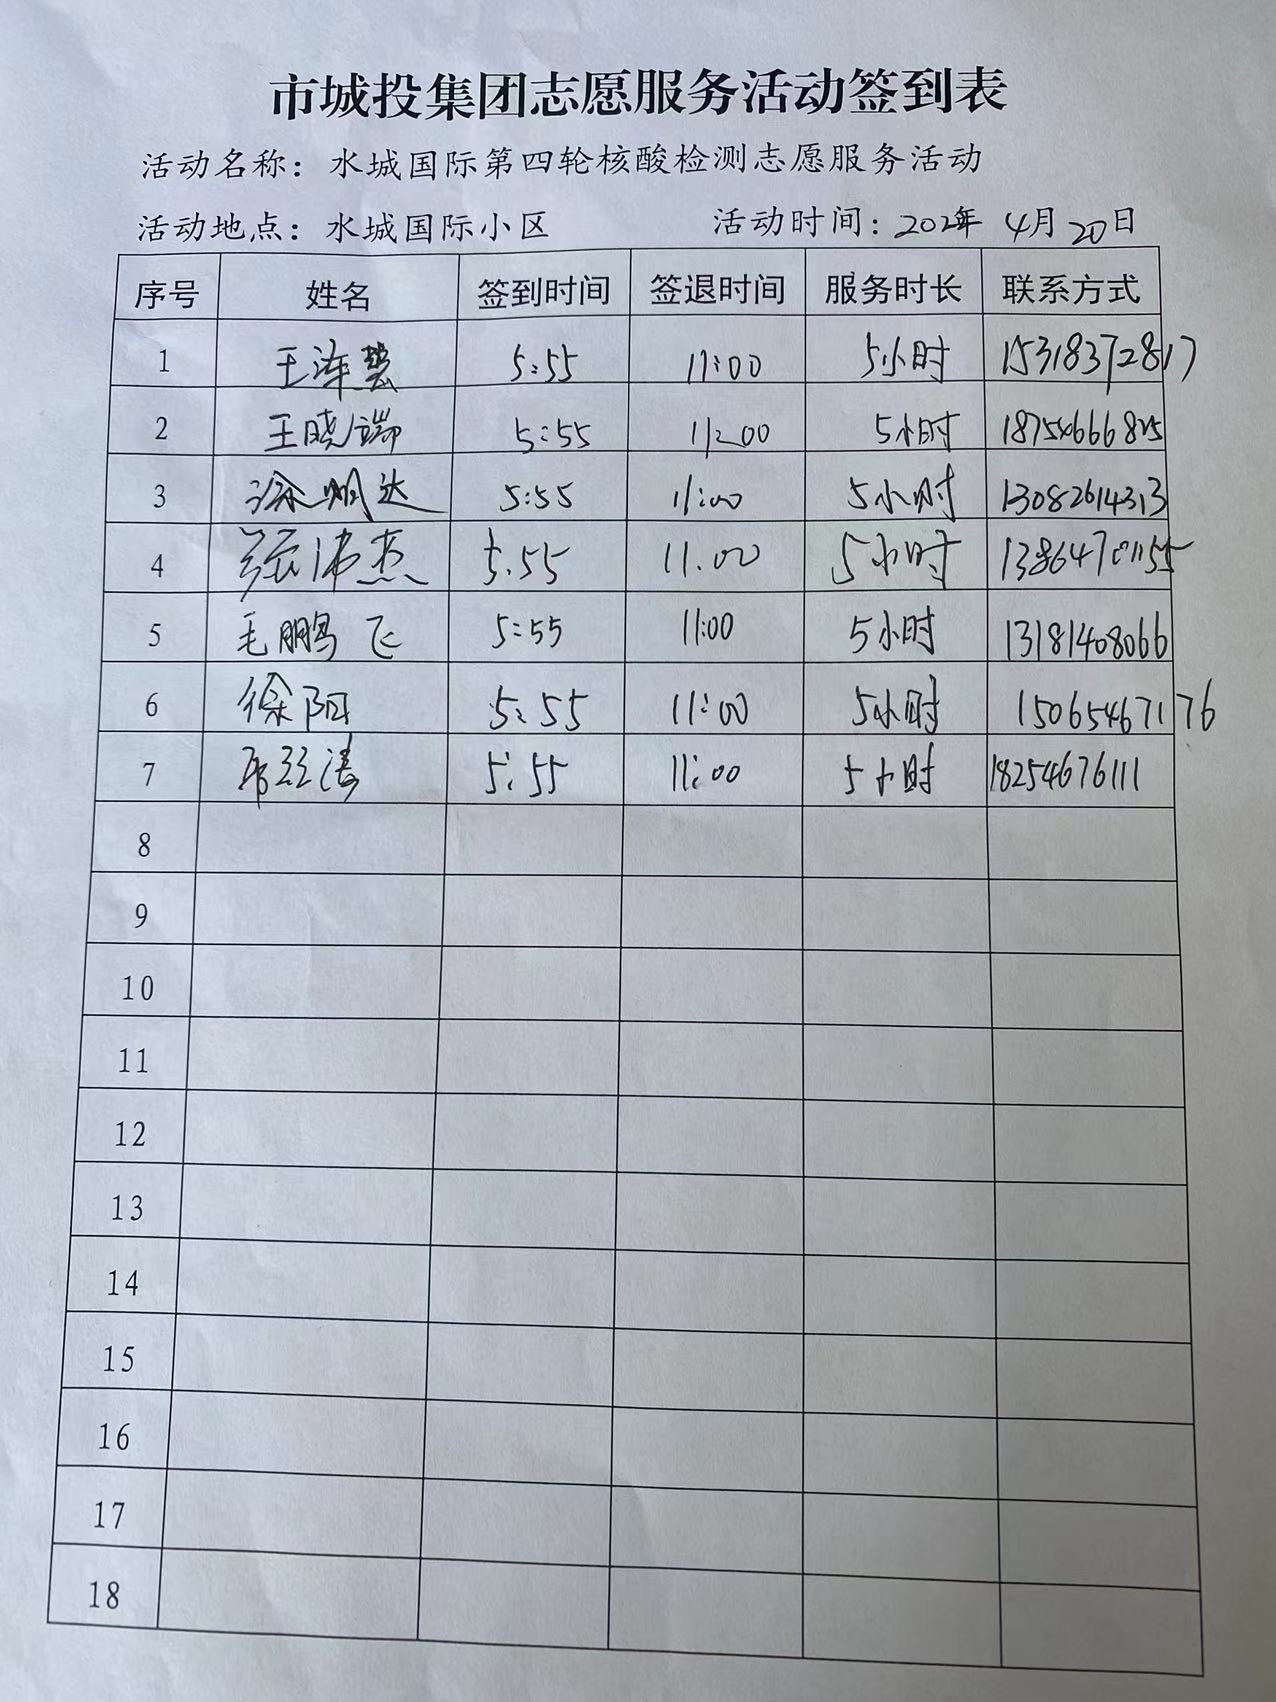 市城投集团志愿服务活动签到表
活动名称：水城国际第四轮核酸检测志愿服务活动
活动地点：水城国际小区 活动时间：202年 4月20日
序号 姓名 签到时间 签退时间 服务时长 联系方式
1 王 5:55 11:00 5小时 15318372817
2 王晓端 5:55 11:00 5小时
3 徐明达 5:55 11:00 5小时 13082614313
4 张沛杰 5.55 11.00 5小时
5 毛鹏飞 5:55 11:00 5小时 13181408066
6 徐阳 5:55 11:00 5小时 15065467176
7 5:55 11:00 5小时 18254676111
8
9
10
11
12
13
14
15
16
17
18